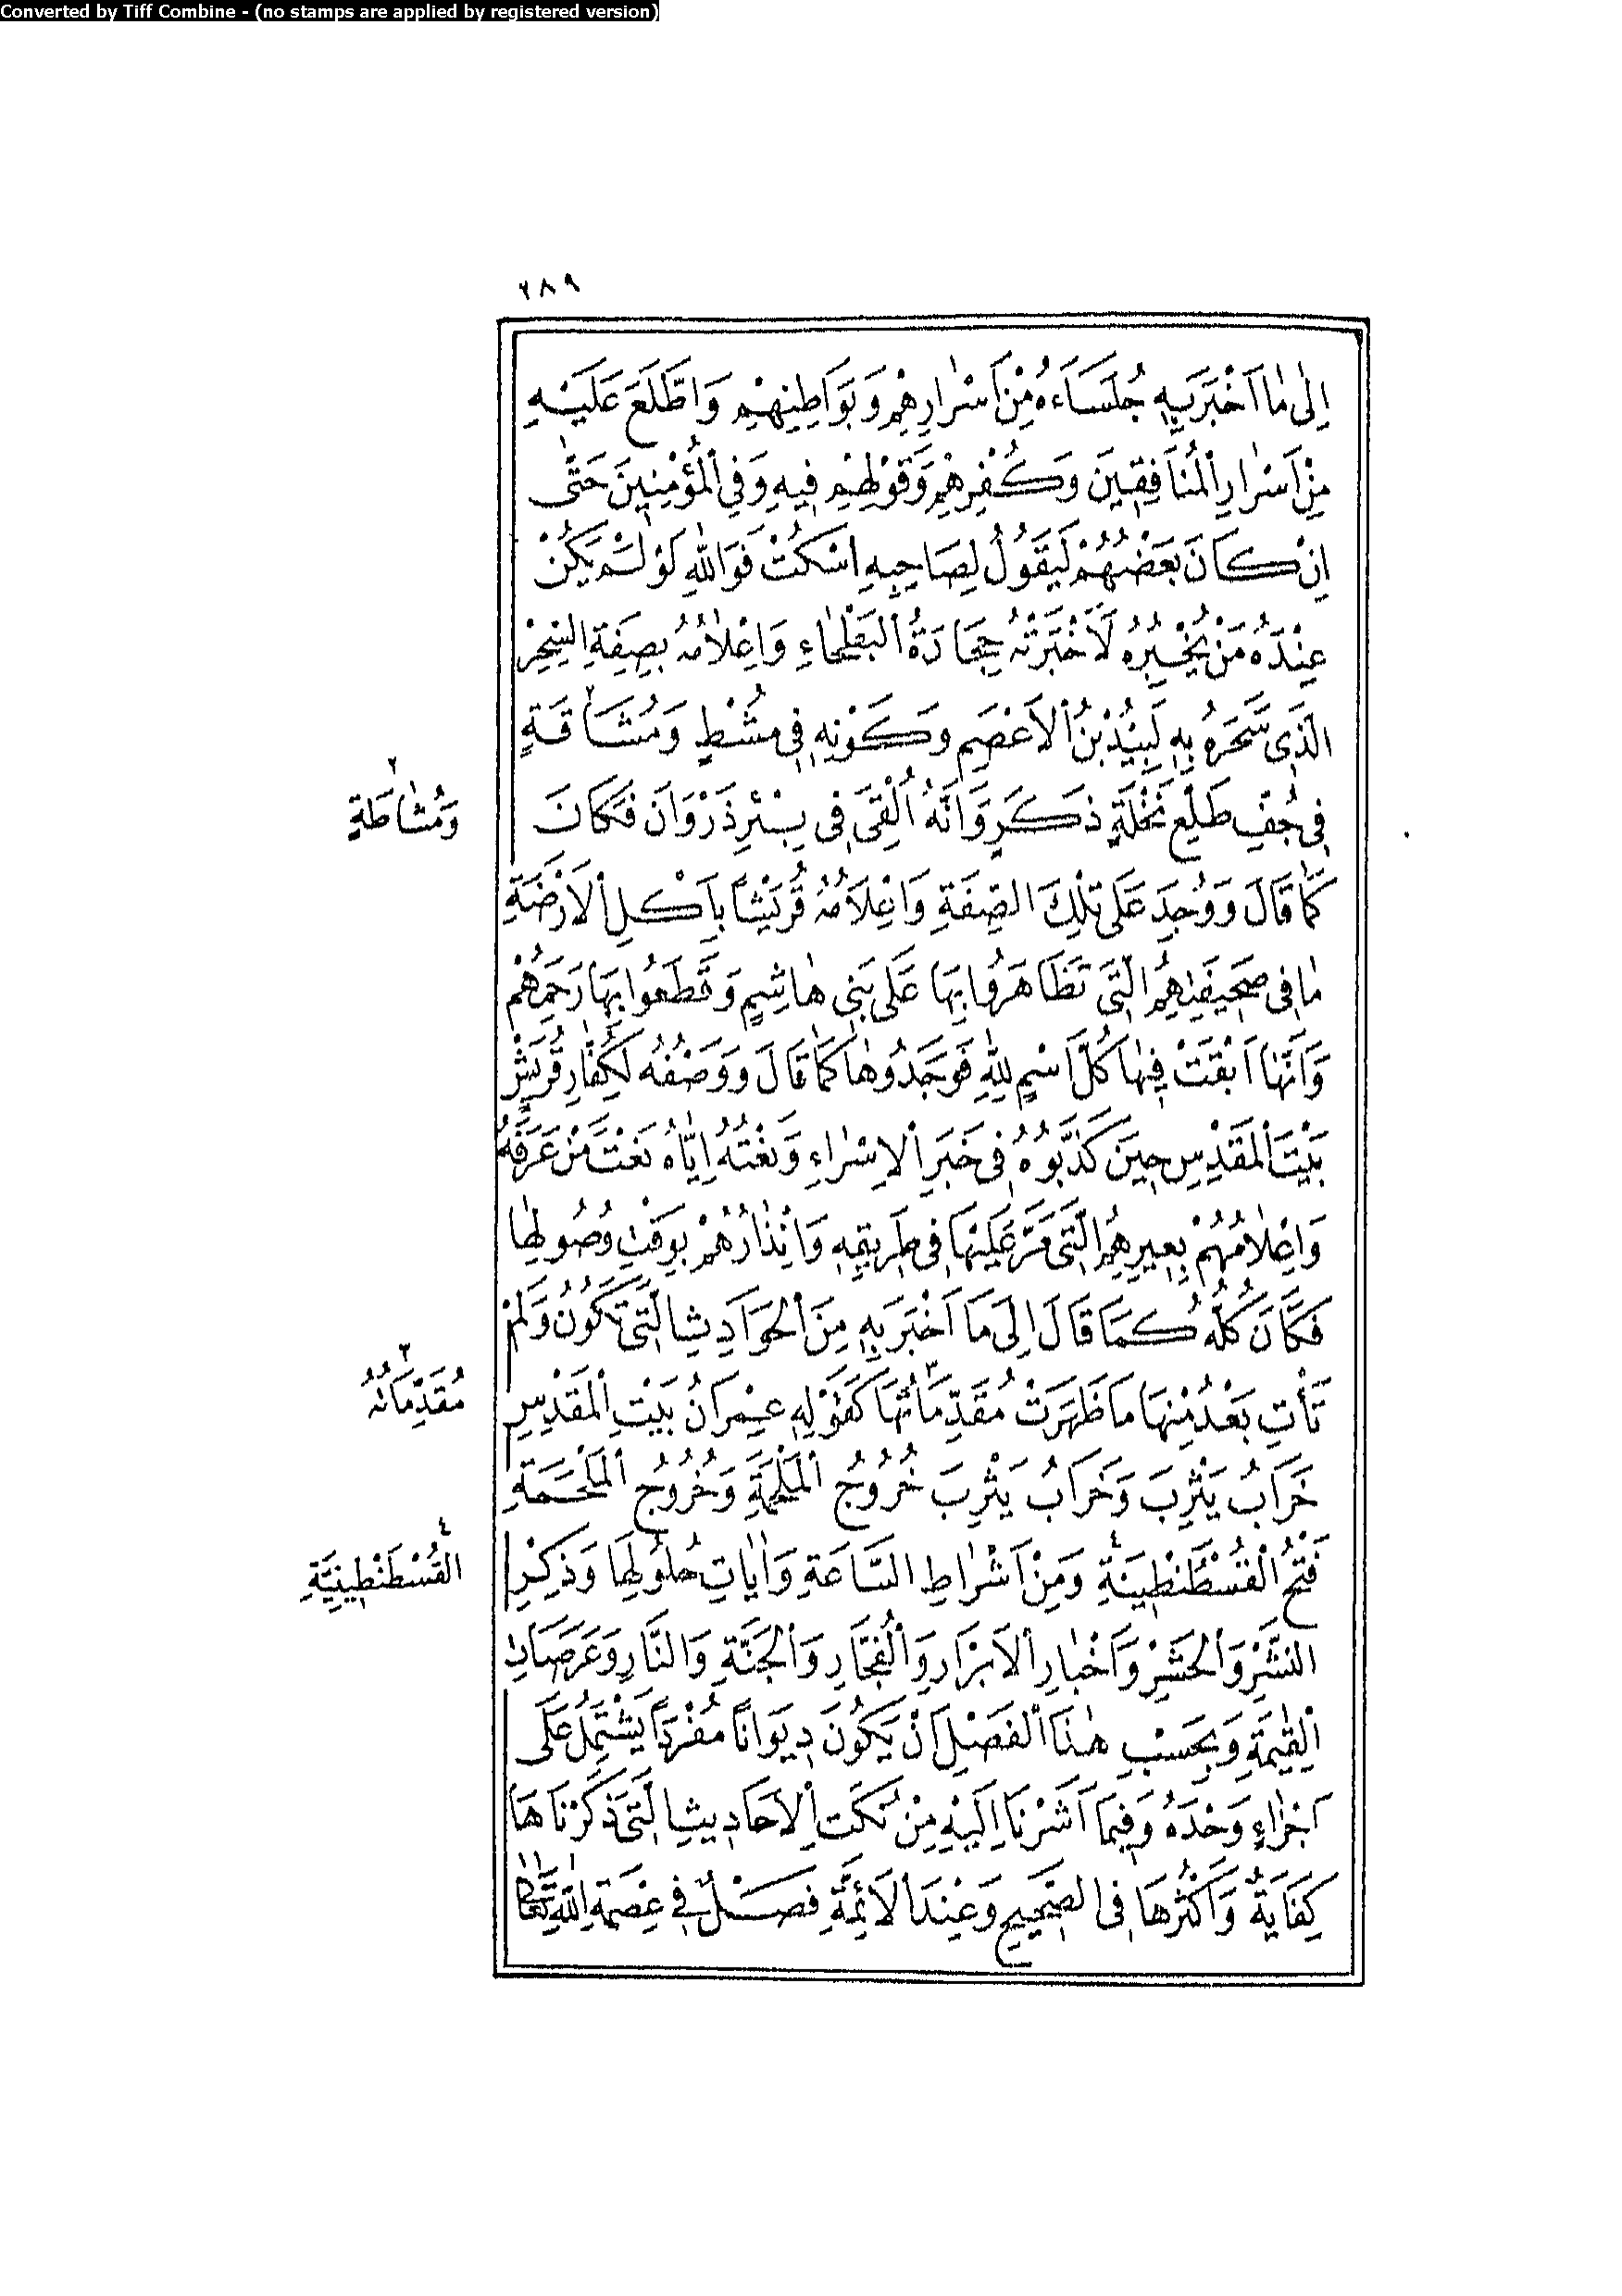 Converted by Tiff Combine - (no stamps are applied by registered version)
٢٨٩
اِلٰى مٰا اَخْبَرَ بِهِ جُلَسَاءَهُ مِنْ اَسْرٰارِهِمْ وَبَوَاطِنِهِمْ وَاطَّلَعَ عَلَيْهِ
مِنْ اَسْرٰارِ الْمُنَافِقِينَ وَكُفْرِهِمْ وَقَوْلِهِمْ فِيهِ وَفِى الْمُؤْمِنِينَ حَتّٰى
اِنْ كَانَ بَعْضُهُمْ لَيَقُولُ لِصَاحِبِهِ اسْكُتْ فَوَاللّٰهِ لَوْ لَمْ يَكُنْ
عِنْدَهُ مَنْ يُخْبِرُهُ لَاَخْبَرَتْهُ حِجَارَةُ الْبَطْحٰاءِ وَاِعْلٰامُهُ بِصِفَةِ السِّحْرِ
الَّذِى سَحَرَهُ بِهِ لَبِيدُ بْنُ الْاَعْصَمِ وَكَوْنِهِ فِى مُشْطٍ وَمُشَاقَةٍ ٢
فِى جُفِّ طَلْعِ نَخْلَةٍ ذَكَرٍ وَاَنَّهُ اُلْقِىَ فِى بِئْرِ ذَرْوَانَ فَكَانَ
٢ وَمُشٰاطَةٍ
كَمٰا قَالَ وَوُجِدَ عَلَى تِلْكَ الصِّفَةِ وَاِعْلَامُهُ قُرَيْشًا بِاَكْلِ الْاَرَضَةِ
مٰا فِى صَحِيفَتِهِمُ الَّتِى تَظَاهَرُوا بِهَا عَلَى بَنِى هٰاشِمٍ وَقَطَعُوا بِهَا رَحِمَهُمْ
وَاَنَّهٰا اَبْقَتْ فِيهٰا كُلَّ اسْمٍ لِلّٰهِ فَوَجَدُوهٰا كَمٰا قَالَ وَوَصْفُهُ لِكُفّٰارِ قُرَيْشٍ
بَيْتَ الْمَقْدِسِ حِينَ كَذَّبُوهُ فِى خَبَرِ الْاِسْرٰاءِ وَنَعْتُهُ اِيّٰاهُ نَعْتَ مَنْ عَرَفَهُ
وَاِعْلٰامُهُمْ بِعِيرِهِمُ الَّتِى مَرَّ عَلَيْهَا فِى طَرِيقِهِ وَاِنْذٰارُهُمْ بِوَقْتِ وُصُولِهٰا
فَكَانَ كُلُّهُ كَمَا قَالَ اِلَى مَا اَخْبَرَ بِهِ مِنَ الْحَوَادِثِ الَّتِى تَكُونُ وَلَمْ
تَأْتِ بَعْدُ مِنْهَا مَا ظَهَرَتْ مُقَدِّمَاتُهَا ٣ كَقَوْلِهِ عِمْرَانُ بَيْتِ الْمَقْدِسِ
٣ مُقَدِّمَاتُهُ
خَرَابُ يَثْرِبَ وَخَرَابُ يَثْرِبَ خُرُوجُ الْمَلْحَمَةِ وَخُرُوجُ الْمَلْحَمَةِ
فَتْحُ الْقُسْطَنْطِينَةِ ٤ وَمِنْ اَشْرٰاطِ السَّاعَةِ وَاٰيٰاتِ حُلُولِهَا وَذِكْرِ
٤ الْقُسْطَنْطِينِيَّةِ
النَّشْرِ وَالْحَشْرِ وَاَخْبٰارِ الْاَبْرَارِ وَالْفُجَّارِ وَالْجَنَّةِ وَالنَّارِ وَعَرَصَاتِ
الْقِيٰمَةِ وَبِحَسْبِ هٰذَا الْفَصْلِ اَنْ يَكُونَ دِيوَانًا مُفْرَدًا يَشْتَمِلُ عَلَى
اَجْزٰاءٍ وَحْدَهُ وَفِيمَا اَشَرْنَا اِلَيْهِ مِنْ نُكَتِ الْاَحَادِيثِ الَّتِى ذَكَرْنَاهَا
كِفَايَةٌ وَاَكْثَرُهَا فِى الصَّحِيحِ وَعِنْدَ الْاَئِمَّةِ فَصْلٌ فِى عِصْمَةِ اللّٰهِ تَعَالٰى